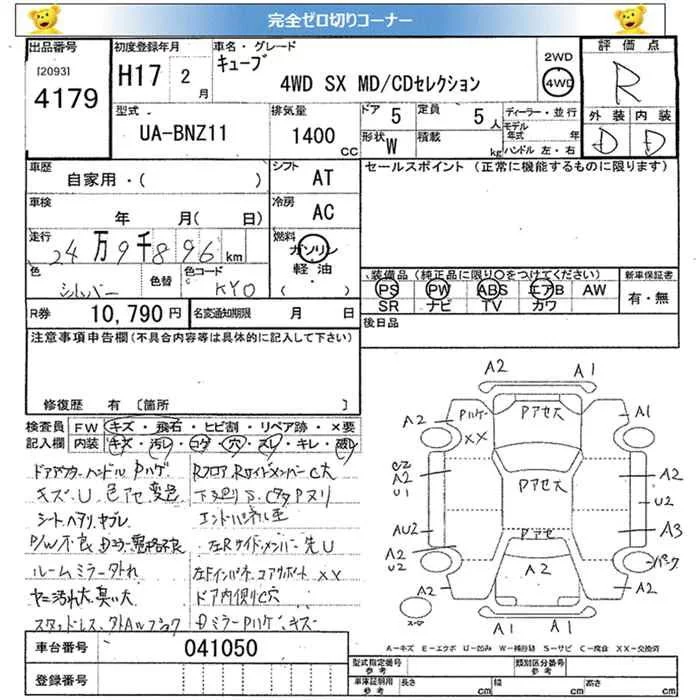 完全ゼロ切りコーナー
出品番号 初度登録年月 車名・グレード 評価点
[2093] H17 2月 キューブ 2WD
4179 4WD SX MD/CDセレクション 4WD R
型式 排気量 ドア 5 定員 5人 ディーラー・並行 外装 内装
UA-BNZ11 1400cc 形状 W 積載 kg モデル年式 年 D D
ハンドル 左・右
車歴 シフト セールスポイント(正常に機能するものに限ります)
自家用・( ) AT
車検 冷房
年 月( 日) AC
走行 燃料
24万9千896km ガソリン
色 色替 色コード 軽油 装備品(純正品に限り○をつけてください) 新車保証書
シルバー KY0 ( ) PS PW ABS エアB AW 有・無
SR ナビ TV カワ
R券 10,790円 名変通知期限 月 日 後日品
注意事項申告欄(不具合内容等は具体的に記入して下さい)
修復歴 有 [箇所
検査員 FW キズ・飛石・ヒビ割・リペア跡・×要
記入欄 内装 キズ・汚レ・コゲ・穴・スレ・キレ・破レ
ドアアウターハンドルPハゲ
キズ、U、色アセ 変色
シートヘタリ、ヤブレ
P/W不良
ルームミラー外れ
ヤニ汚れ大、臭い大
RフロアRサイドメンバーC大
下廻りS、C
エンドパネル歪
左Rサイドメンバー先U
左Fインパネ、コアサポートXX
ドア内側C穴
ドミラーPハゲ、キズ
A2 A1
A2 Pハゲ Pアセ大 A1
XX
C2 A2 U1 Pアセ大 A2
U2
AU2 Pアセ A3
A2 U2 A2 パンク
A2 A2
A2 A1
A-キズ E-エクボ U-凹み W-補修跡 S-サビ C-腐食 XX-交換済
車台番号 041050
登録番号
型式指定番号 参考 類別区分番号 参考
車庫証明用 参考 長さ cm 幅 cm 高さ cm